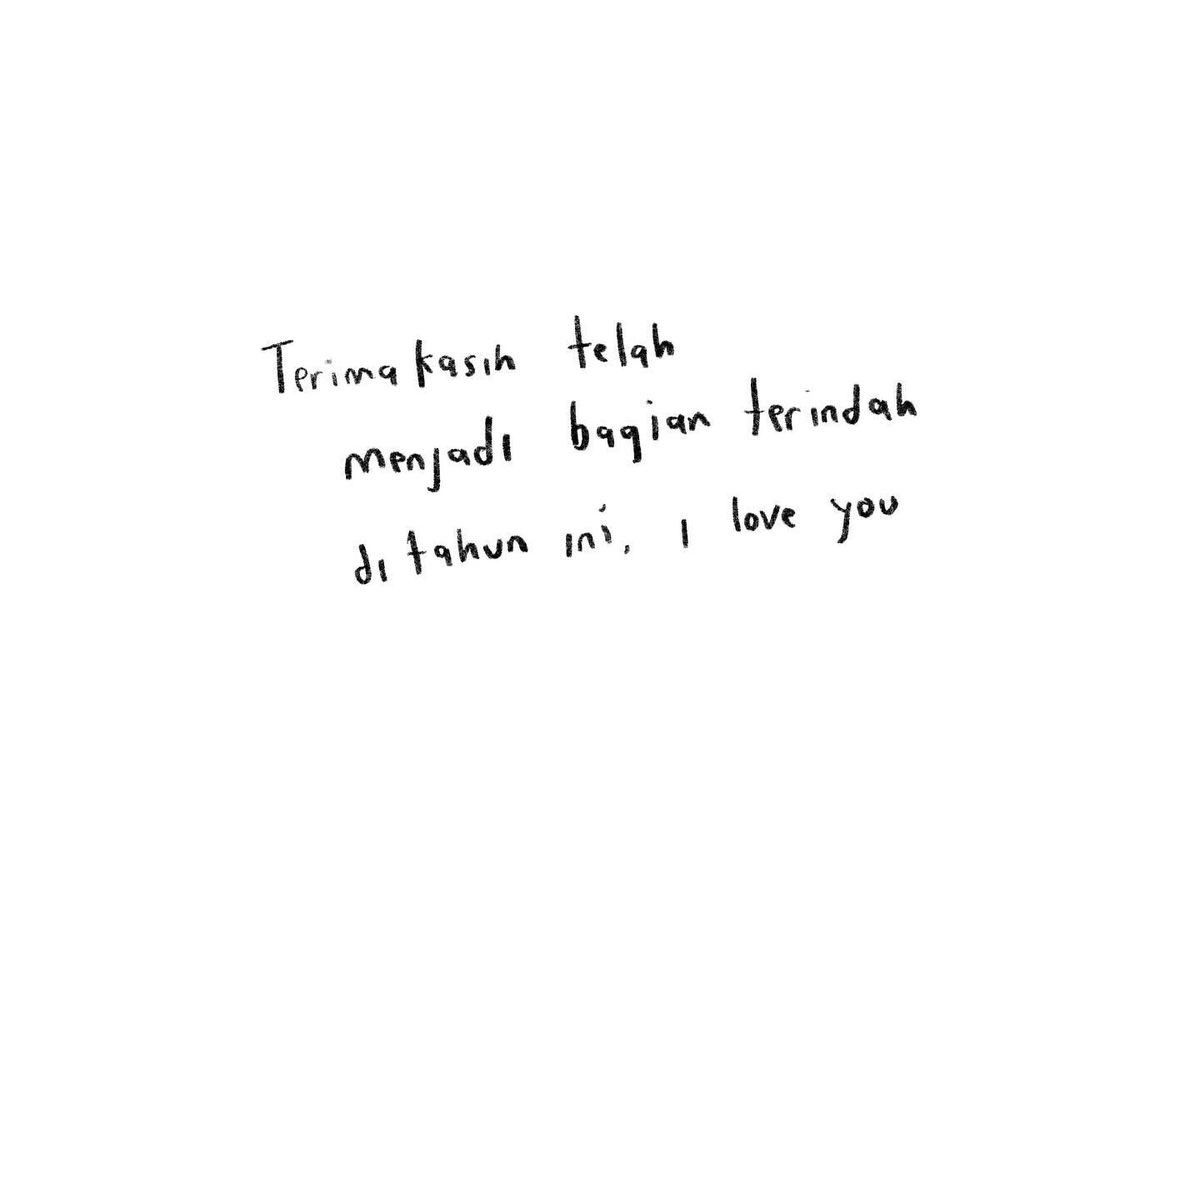 Terima kasih telah
menjadi bagian terindah
di tahun ini, I love you